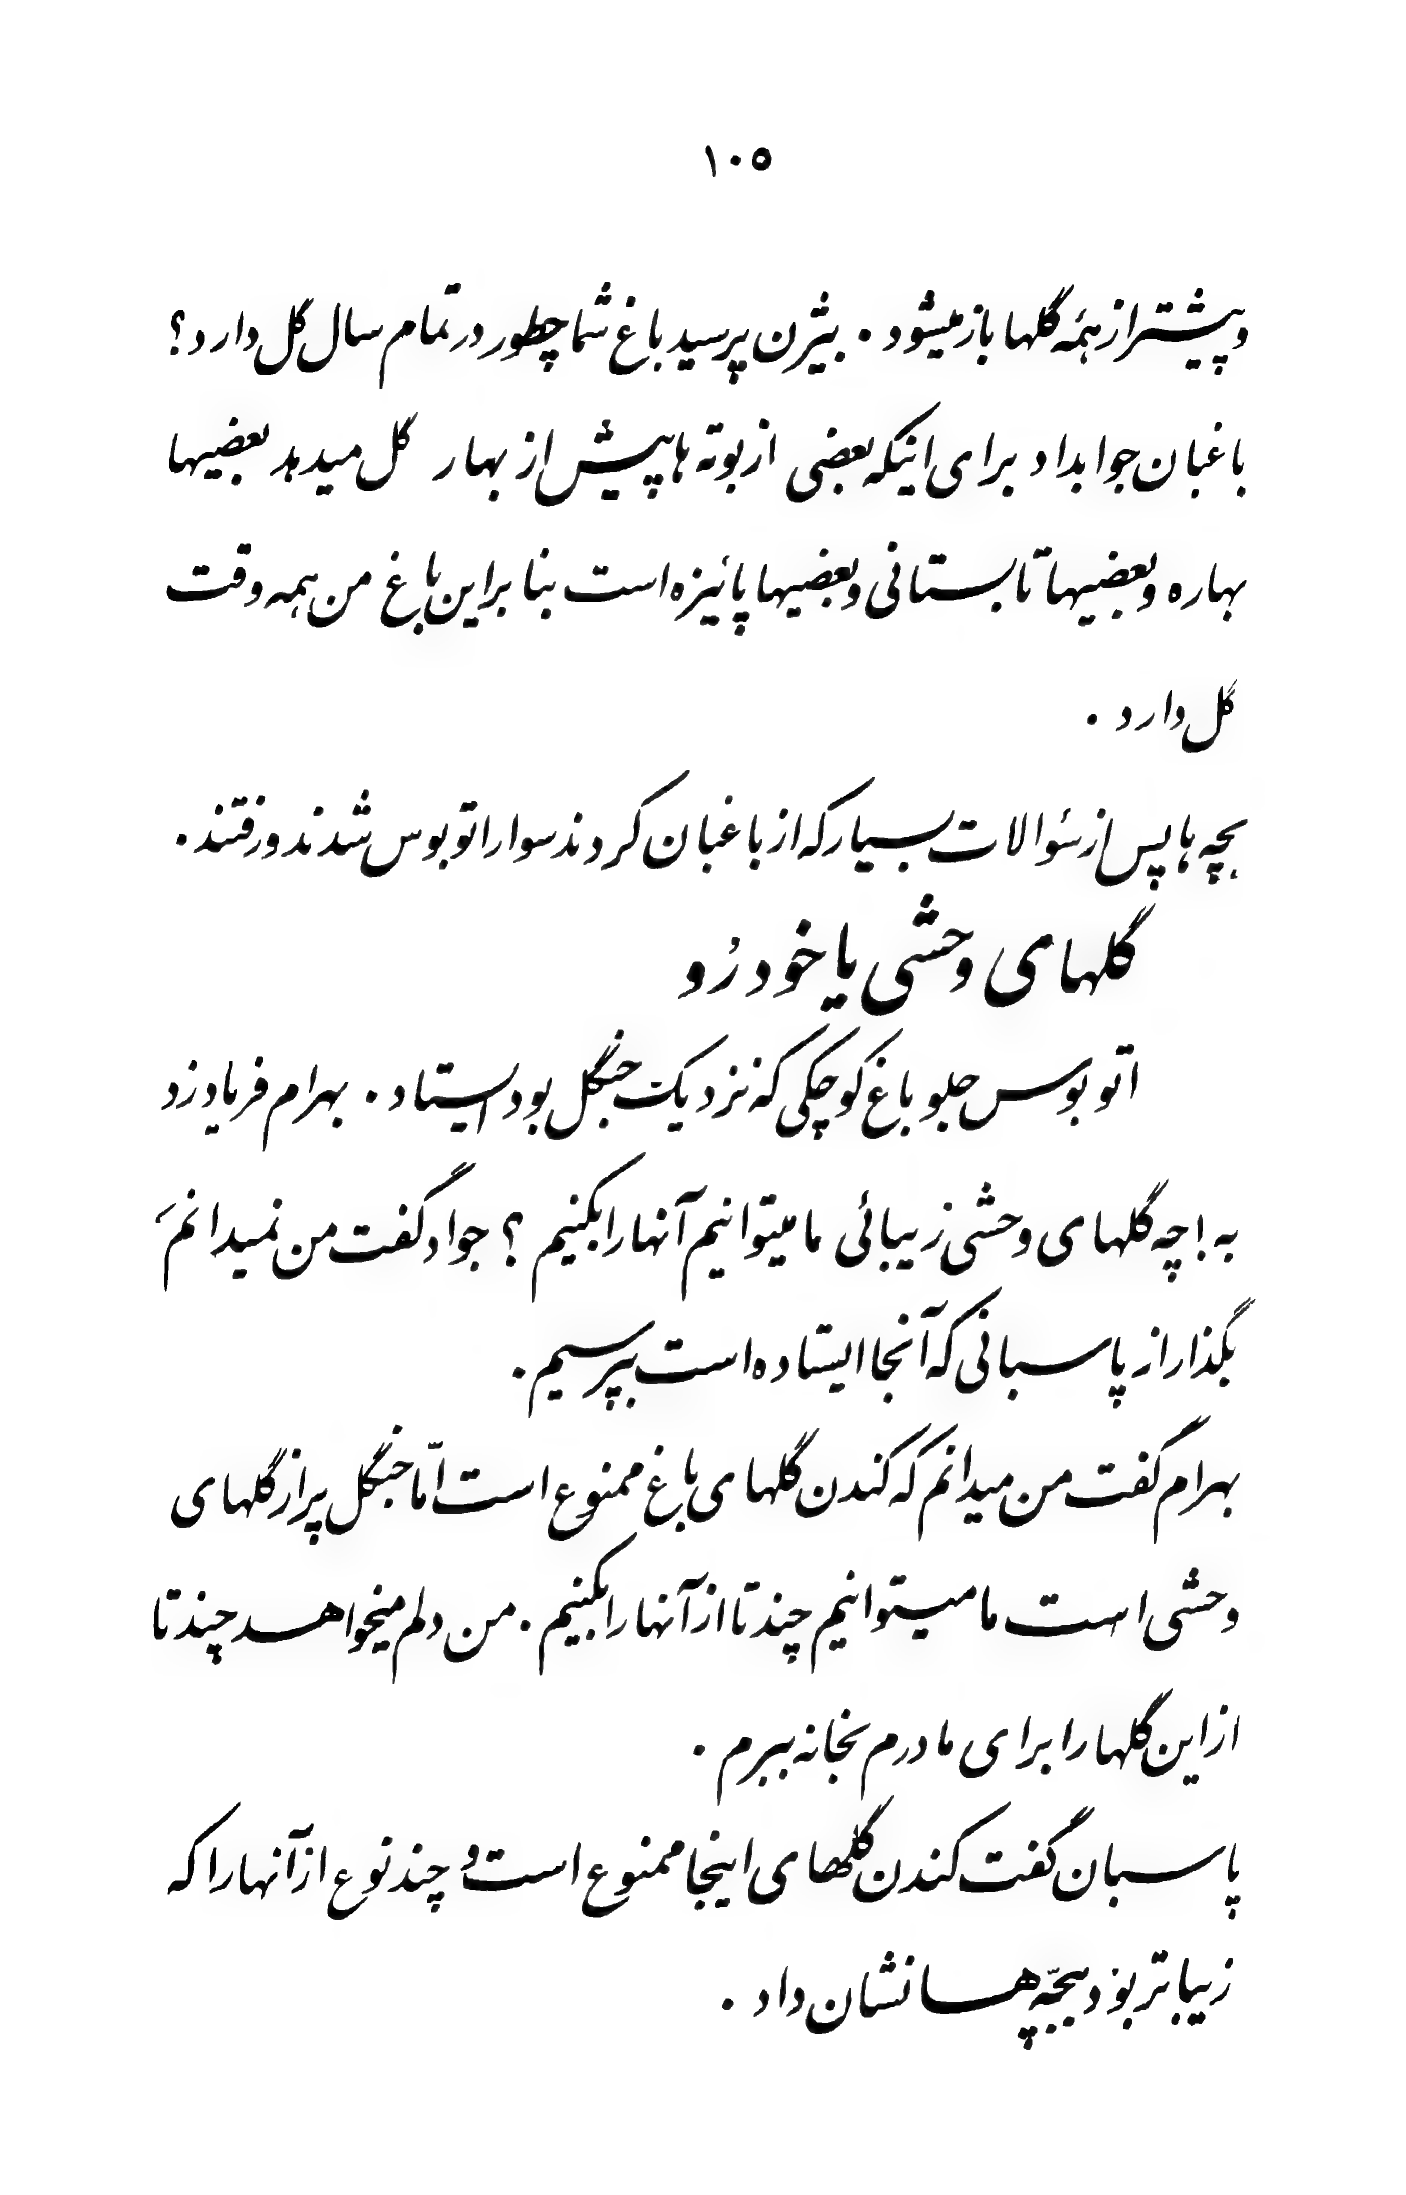 ۱۰۵
و پیشتر از همه گلها باز میشود . بیژن پرسید باغ شما چطور در تمام سال گل دارد ؟
باغبان جوابداد برای اینکه بعضی از بوته ها پیش از بهار گل میدهد بعضیها
بهاره و بعضیها تابستانی و بعضیها پائیزه است بنابراین باغ من همه وقت
گل دارد .
بچه ها پس از سئوالات بسیار که از باغبان کردند سوار اتوبوس شدند و رفتند .
گلهای وحشی یا خود رُو
اتوبوس جلو باغ کوچکی که نزدیک جنگل بود ایستاد . بهرام فریاد زد
به ! چه گلهای وحشی زیبائی ما میتوانیم آنها را بکنیم ؟ جواد گفت من نمیدانم
بگذار از پاسبانی که آنجا ایستاده است بپرسیم .
بهرام گفت من میدانم که کندن گلهای باغ ممنوع است امّا جنگل پر از گلهای
وحشی است ما میتوانیم چند تا از آنها را بکنیم . من دلم میخواهد چند تا
از این گلها را برای مادرم بخانه ببرم .
پاسبان گفت کندن گلهای اینجا ممنوع است و چند نوع از آنها را که
زیباتر بود ببچّه ها نشان داد .